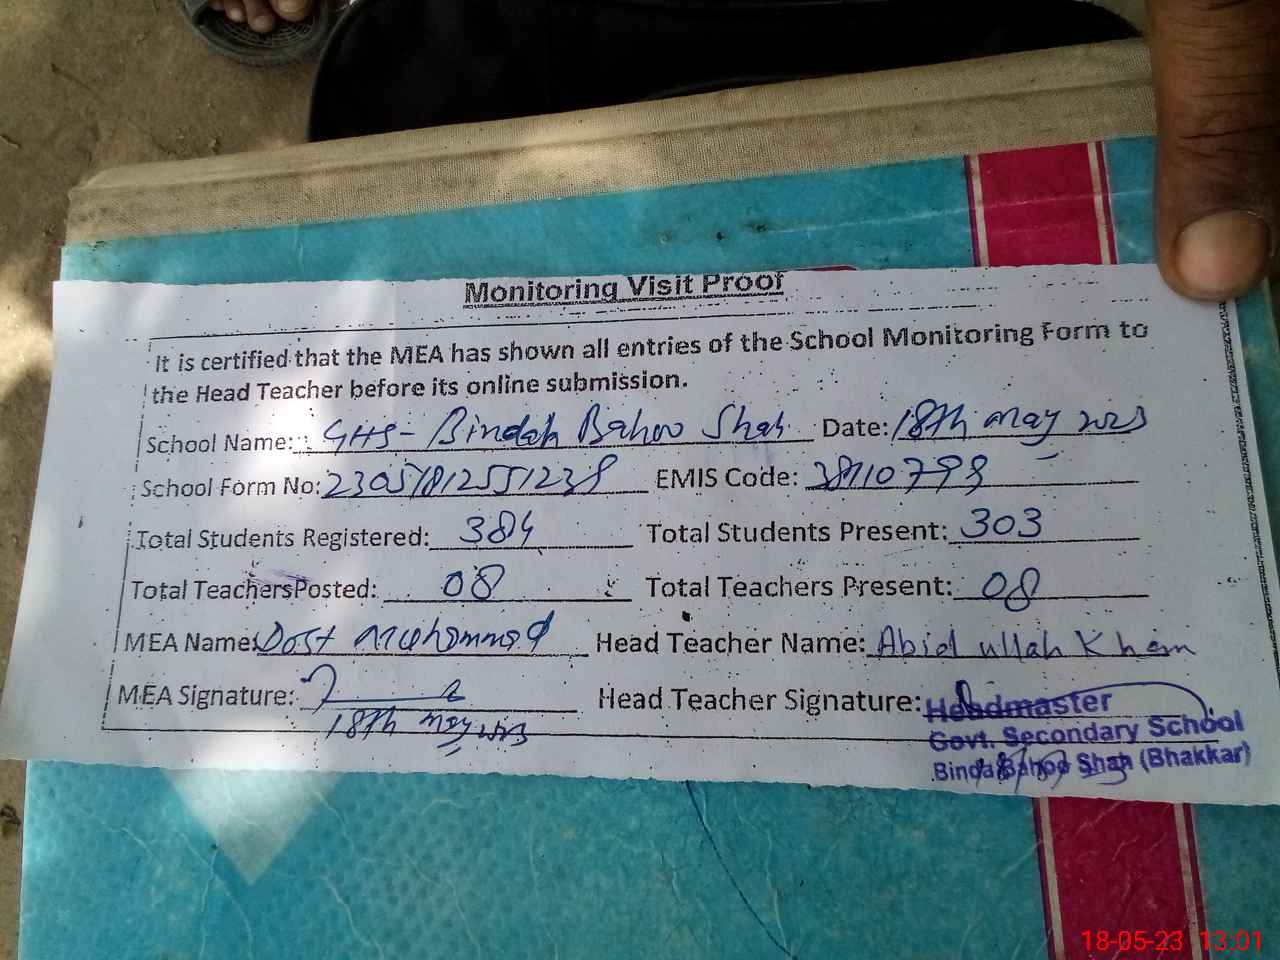 Monitoring Visit Proof
It is certified that the MEA has shown all entries of the School Monitoring Form to
the Head Teacher before its online submission.
School Name: GHS - Bindah Bahoo Shah Date: 18th may 2023
School Form No: 23051812551238 EMIS Code: 38110793
Total Students Registered: 384 Total Students Present: 303
Total Teachers Posted: 08 Total Teachers Present: 08
MEA Name: Dost Muhammad Head Teacher Name: Abid ullah Khan
MEA Signature: Head Teacher Signature:
18th may 2023
Headmaster
Govt. Secondary School
Binda Bahoo Shah (Bhakkar)
18-05-23 13:01